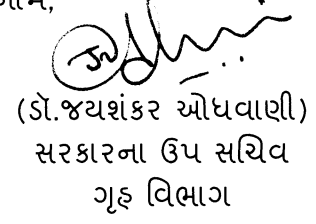 (ડૉ.જયશંકર ઓધવાણી)
સરકારના ઉપ સચિવ
ગૃહ વિભાગ